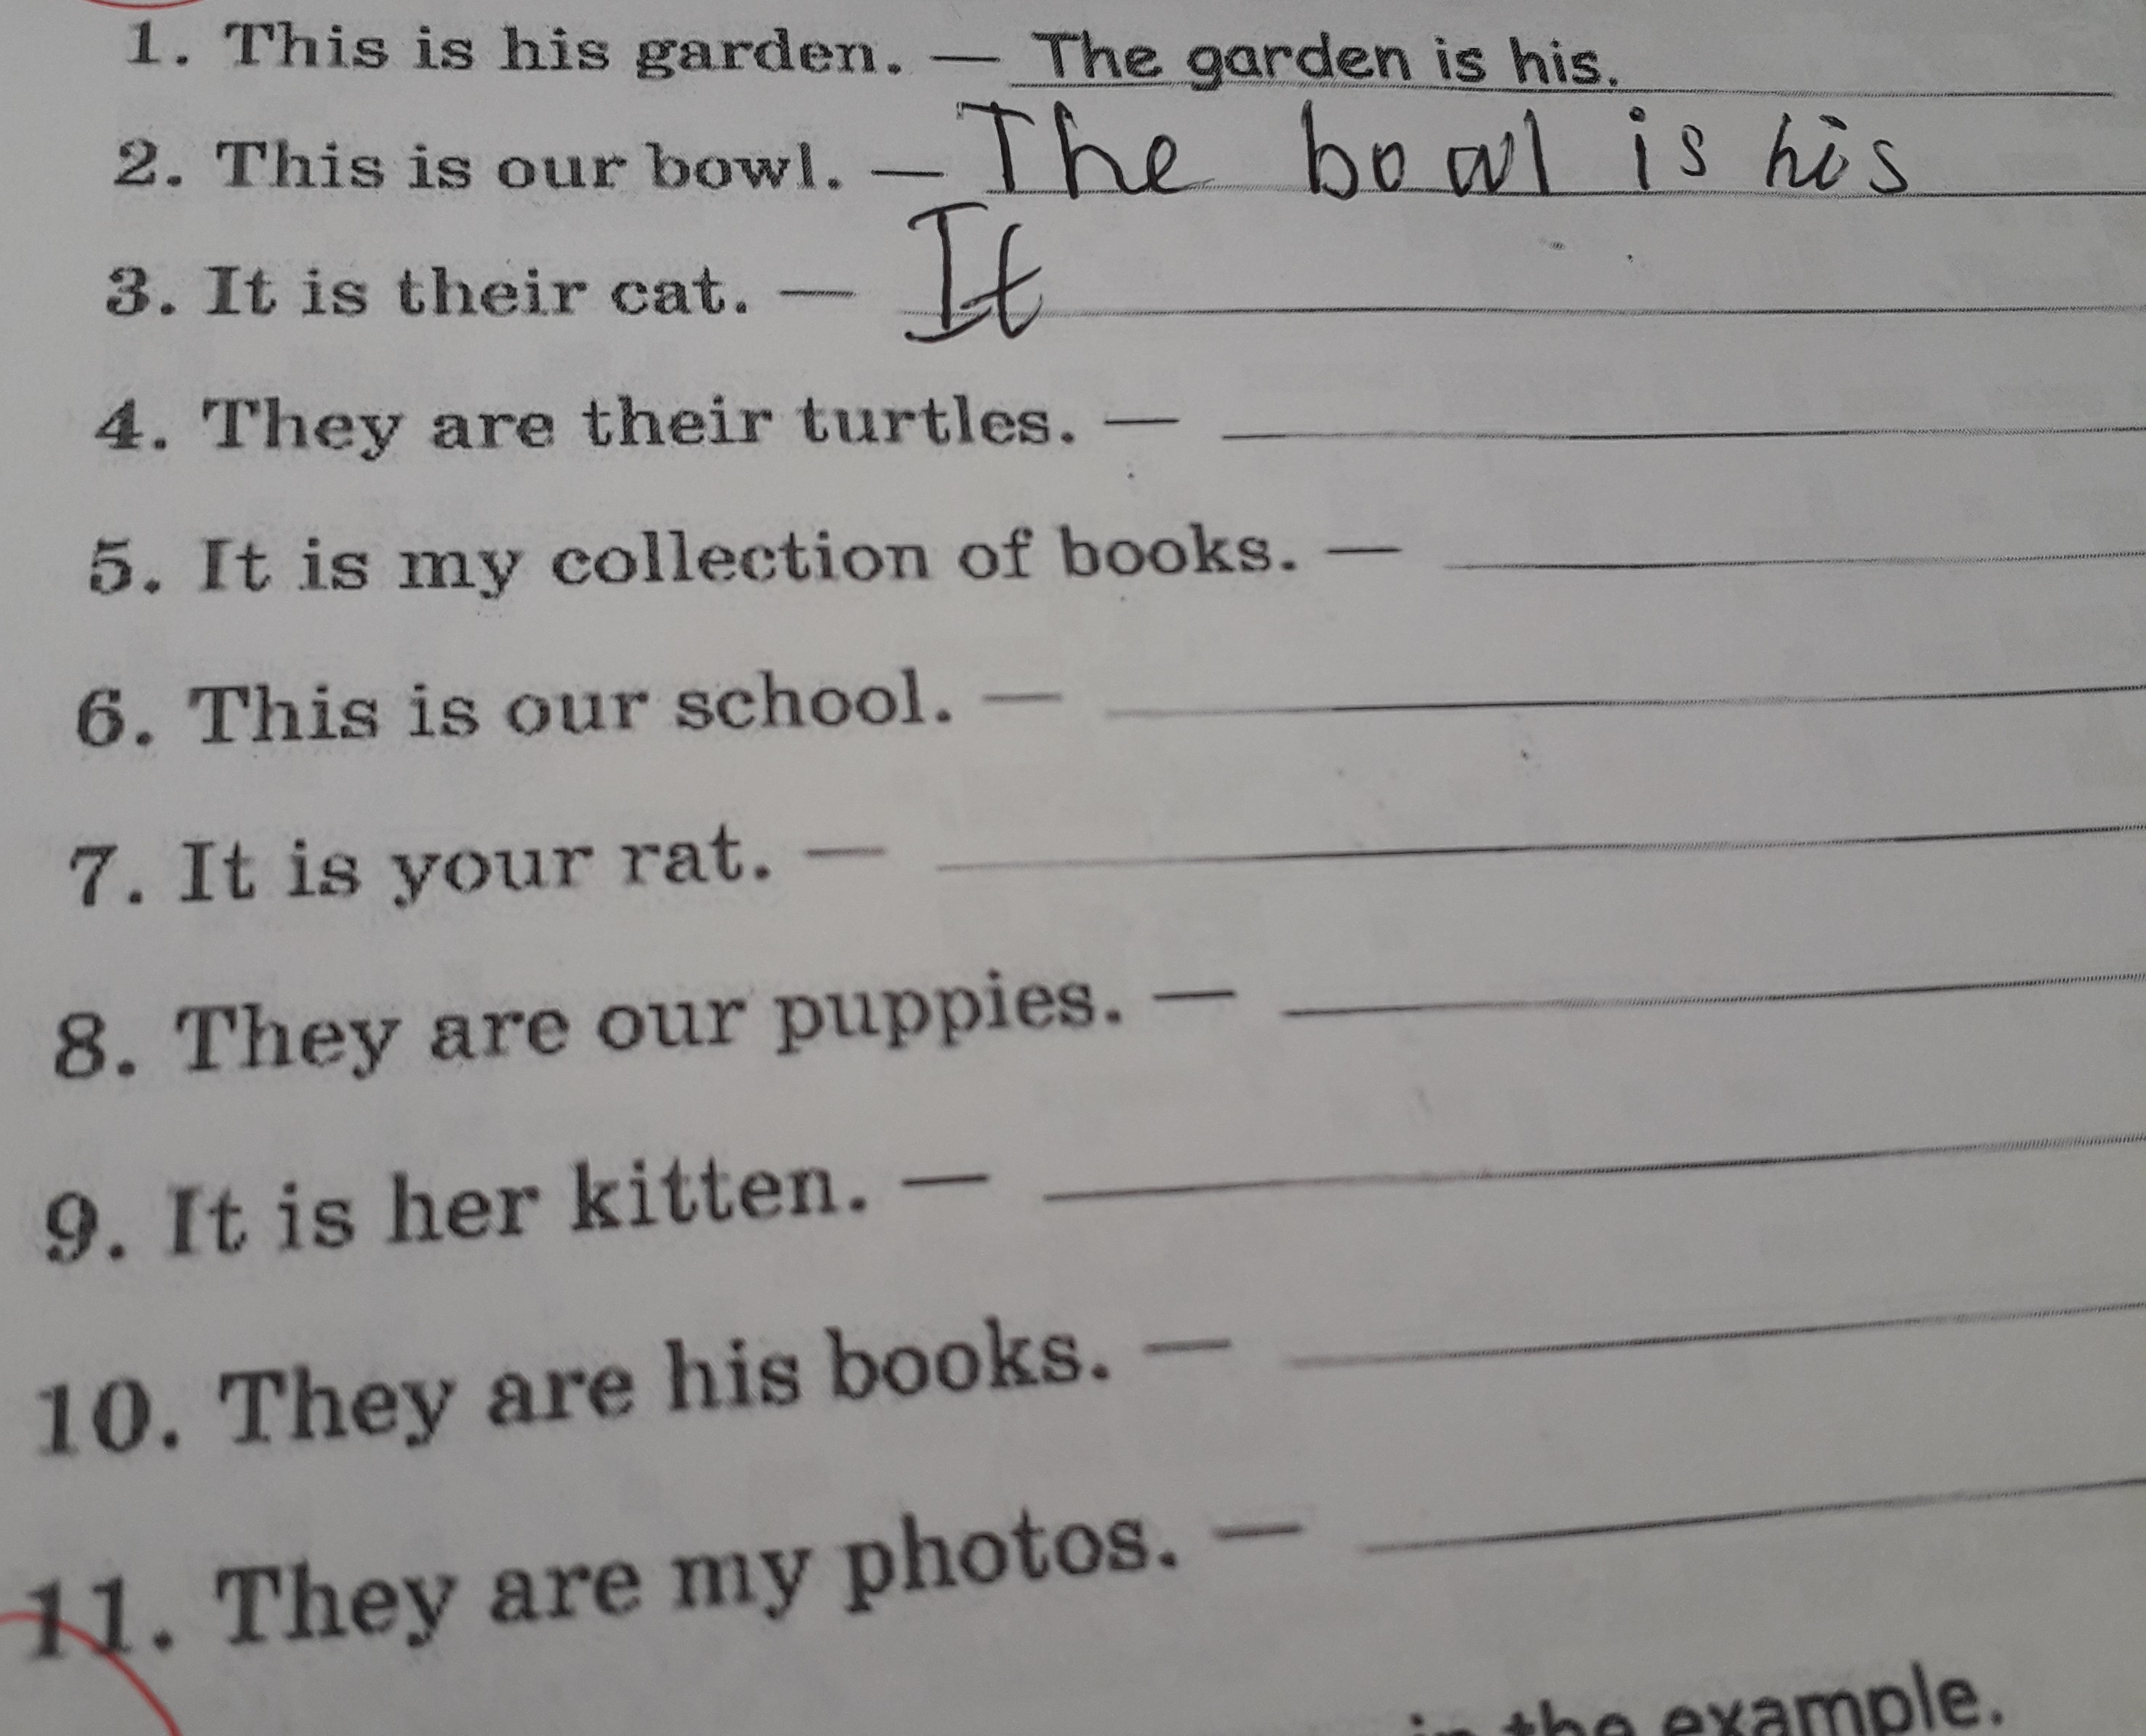 1. This is his garden. — The garden is his.
2. This is our bowl. — The bowl is his
3. It is their cat. — It
4. They are their turtles. —
5. It is my collection of books. —
6. This is our school. —
7. It is your rat. —
8. They are our puppies. —
9. It is her kitten. —
10. They are his books. —
11. They are my photos. —
in the example.